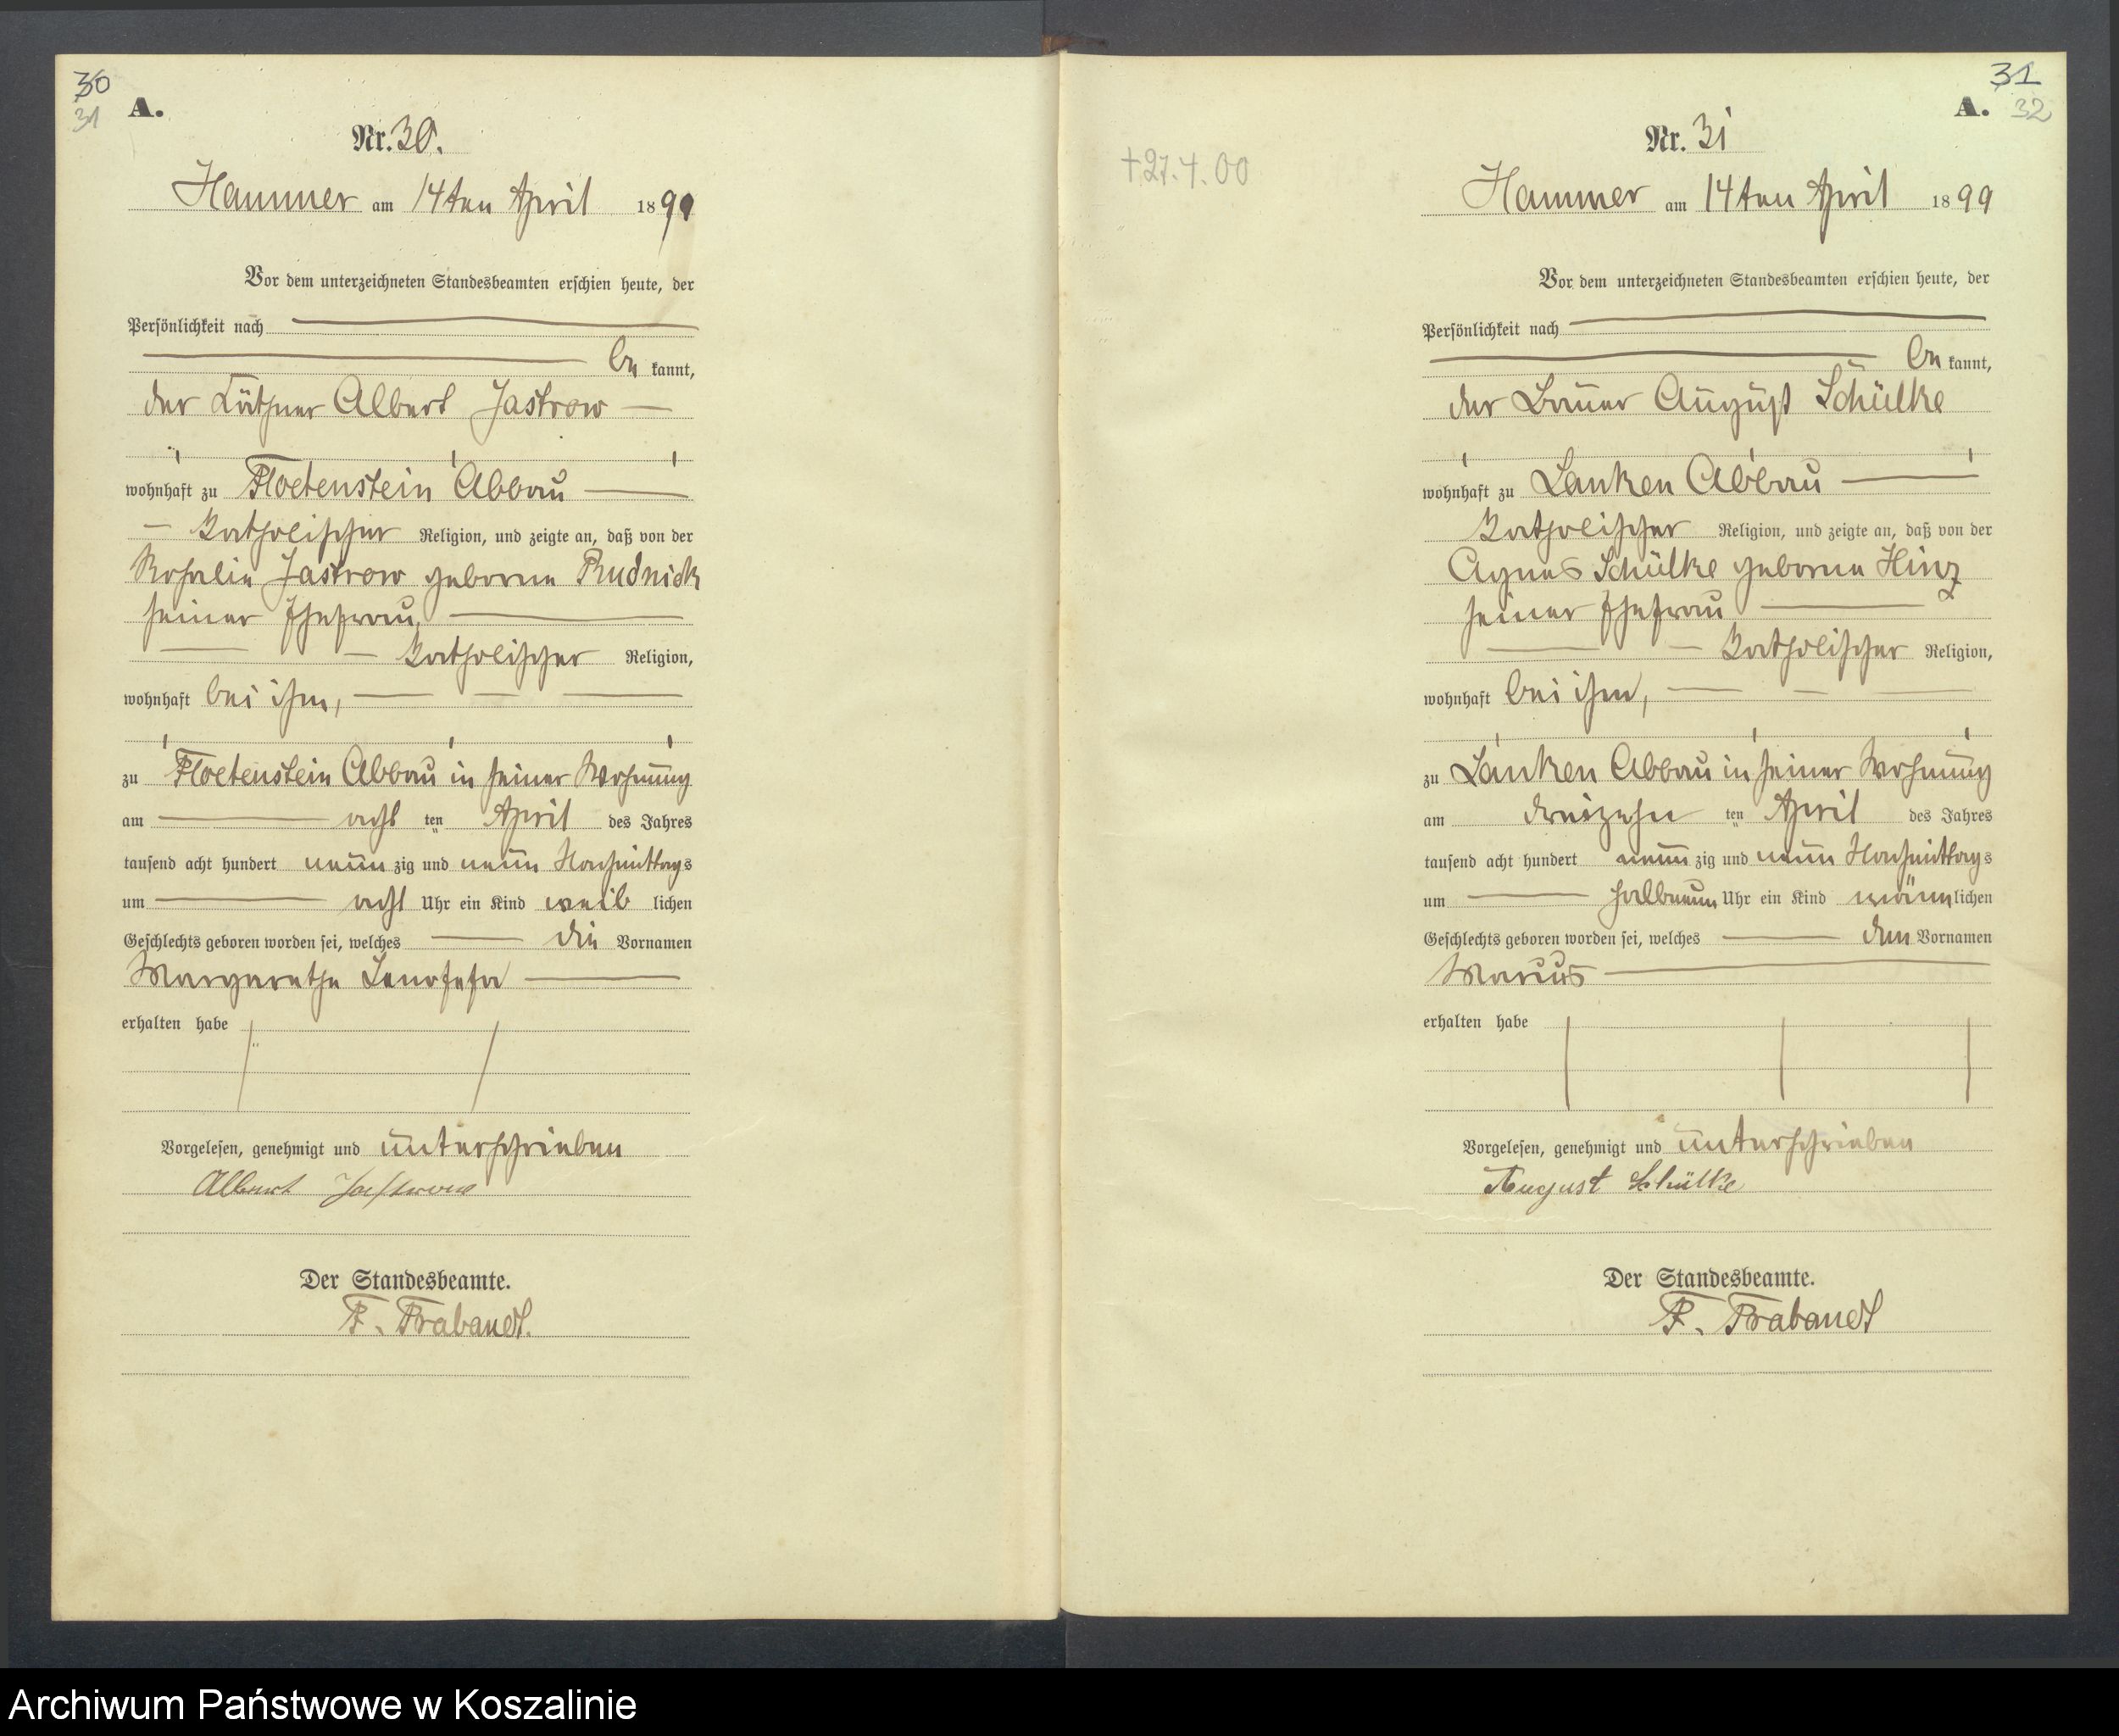 30
31
A.
Nr. 30.
Hammer am 14ten April 1899
Vor dem unterzeichneten Standesbeamten erschien heute, der
Persönlichkeit nach
be kannt,
der Käthner Albert Jastrow
wohnhaft zu Floetenstein Abbau
katholischer Religion, und zeigte an, daß von der
Rosalie Jastrow geborne Rudnick
seiner Ehefrau,
katholischer Religion,
wohnhaft bei ihm,
zu Floetenstein Abbau in seiner Wohnung
am acht ten April des Jahres
tausend acht hundert neun zig und neun Nachmittags
um acht Uhr ein Kind weib lichen
Geschlechts geboren worden sei, welches die Vornamen
Margarethe Genofefa
erhalten habe
Vorgelesen, genehmigt und unterschrieben
Albert Jastrow
Der Standesbeamte.
F. Brabandt.
31
A. 32
Nr. 31
+27.4.00
Hammer am 14ten April 1899
Vor dem unterzeichneten Standesbeamten erschien heute, der
Persönlichkeit nach
be kannt,
der Bauer August Schülke
wohnhaft zu Lanken Abbau
katholischer Religion, und zeigte an, daß von der
Agnes Schülke geborne Hinz
seiner Ehefrau
katholischer Religion,
wohnhaft bei ihm,
zu Lanken Abbau in seiner Wohnung
am dreizehn ten April des Jahres
tausend acht hundert neun zig und neun Nachmittags
um halbneun Uhr ein Kind männlichen
Geschlechts geboren worden sei, welches den Vornamen
Marcus
erhalten habe
Vorgelesen, genehmigt und unterschrieben
August Schülke
Der Standesbeamte.
F. Brabandt
Archiwum Państwowe w Koszalinie